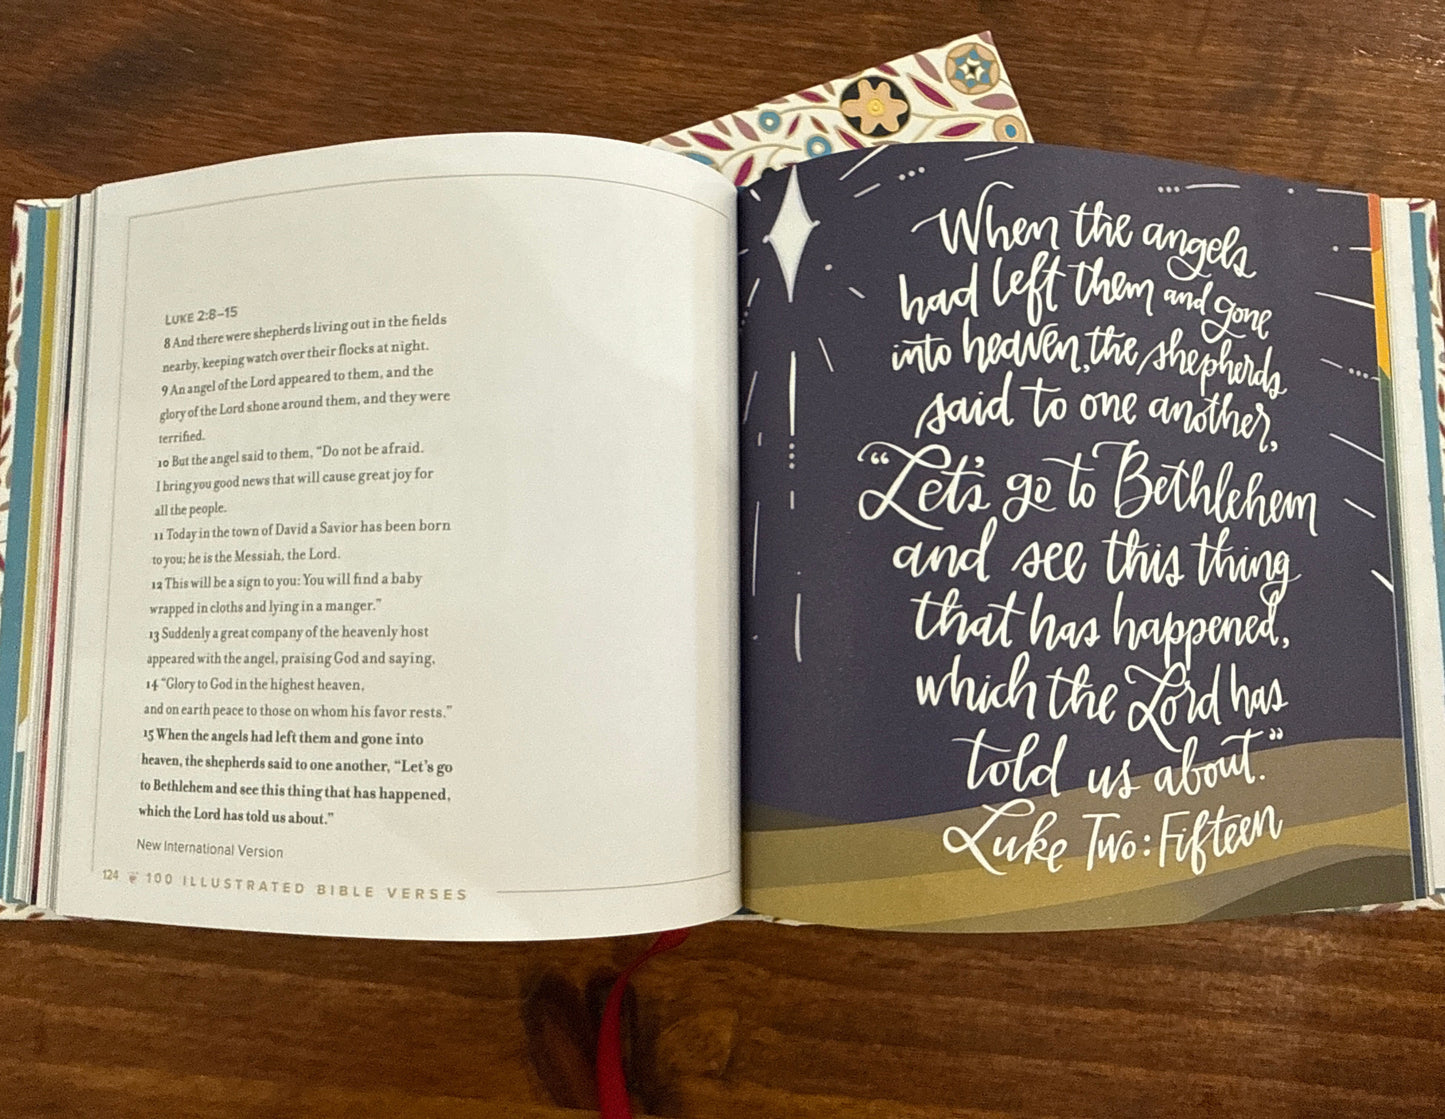 LUKE 2:8–15
8 And there were shepherds living out in the fields
nearby, keeping watch over their flocks at night.
9 An angel of the Lord appeared to them, and the
glory of the Lord shone around them, and they were
terrified.
10 But the angel said to them, “Do not be afraid.
I bring you good news that will cause great joy for
all the people.
11 Today in the town of David a Savior has been born
to you; he is the Messiah, the Lord.
12 This will be a sign to you: You will find a baby
wrapped in cloths and lying in a manger.”
13 Suddenly a great company of the heavenly host
appeared with the angel, praising God and saying,
14 “Glory to God in the highest heaven,
and on earth peace to those on whom his favor rests.”
15 When the angels had left them and gone into
heaven, the shepherds said to one another, “Let’s go
to Bethlehem and see this thing that has happened,
which the Lord has told us about.”
New International Version
124 100 ILLUSTRATED BIBLE VERSES
When the angels
had left them and gone
into heaven, the shepherds
said to one another,
“Let’s go to Bethlehem
and see this thing
that has happened,
which the Lord has
told us about.”
Luke Two: Fifteen